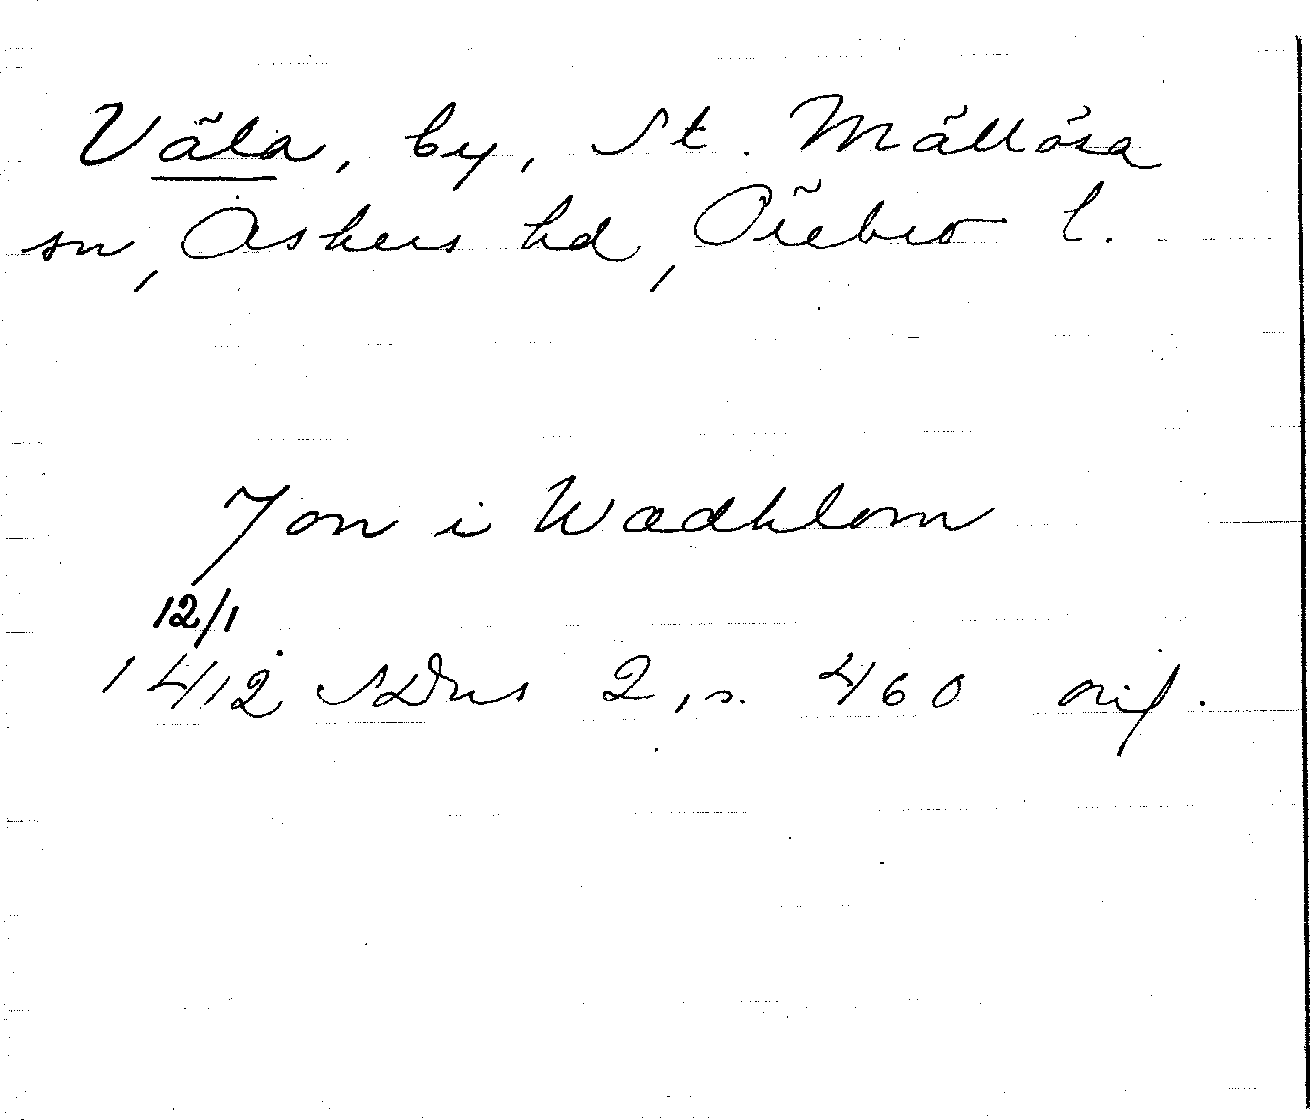 Väla, by, St. Mällösa
sn, Askers hd, Örebro l.
Jon i Wædhlom
12/1
1412 SDns 2, s. 460 orif.